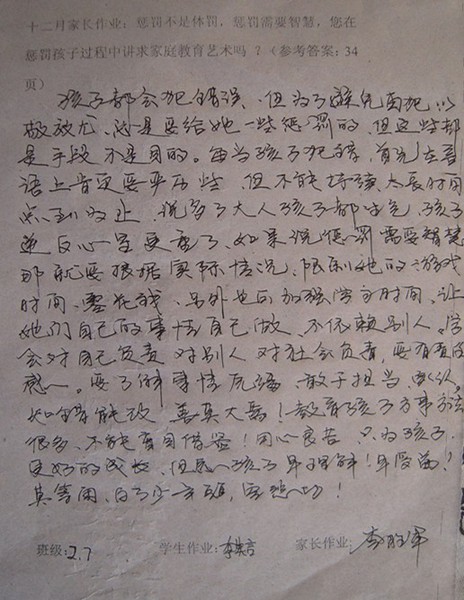 十二月家长作业：惩罚不是体罚，惩罚需要智慧，您在
惩罚孩子过程中讲求家庭教育艺术吗？（参考答案：34
页）
孩子都会犯错误、但为了避免再犯以
极效尤、还是要给她一些惩罚的，但这些都
是手段不是目的。每当孩子犯错，首先在言
语上肯定要严厉些，但不能持续太长时间
点到为止，说多了大人孩子都生气，孩子
逆反心里更重了、如果说惩罚需要智慧
那就要根据实际情况、限制她的游戏
时间、零花钱、另外也可加强学习时间、让
她们自己的事情自己做、不依赖别人。学
会对自己负责 对别人 对社会负责，要有责任
感。要了解事情原编 敢于担当、承认。
知错能改 善莫大焉！教育孩子方事方法
很多、不能盲目借鉴！用心良苦 只为孩子
更好的成长，但愿孩子早理解！早受益！
莫等闲、白了少年头，空悲切！
班级：2.7 学生作业： 家长作业：